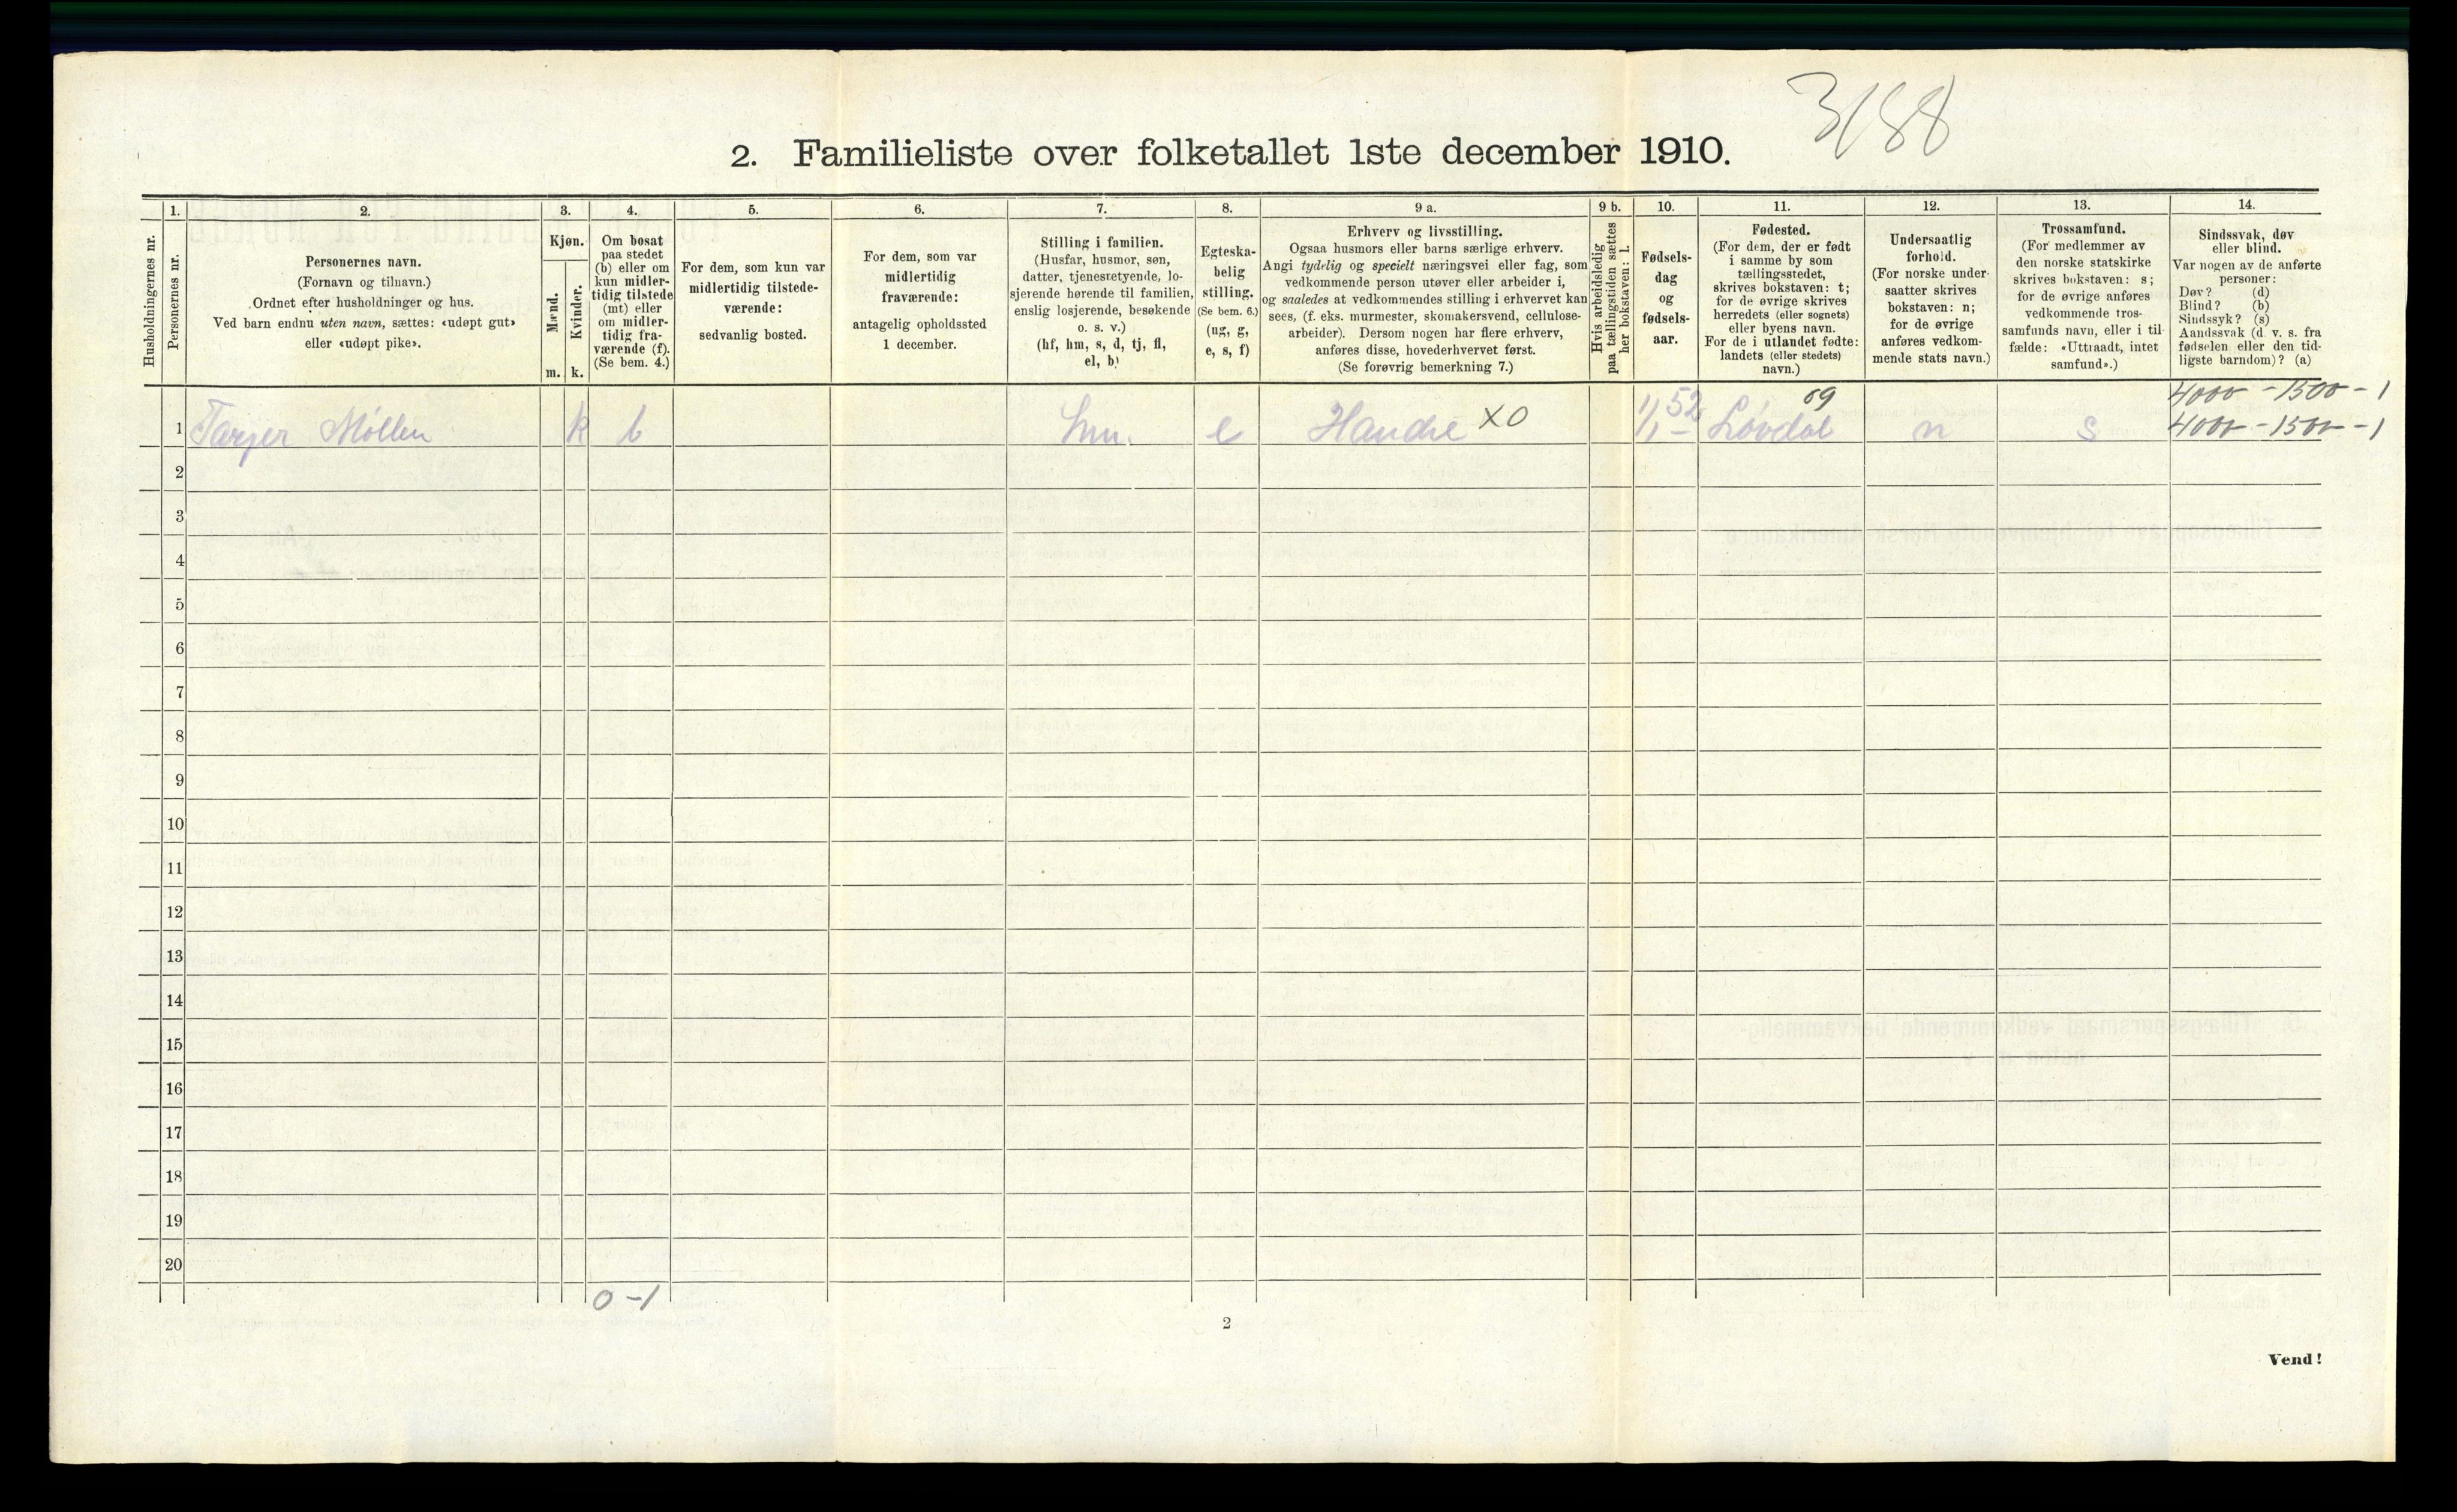 3/88
2. Familieliste over folketallet 1ste december 1910.
1. 2. 3. 4. 5. 6. 7. 8. 9 a. 9 b. 10. 11. 12. 13. 14.
Husholdningernes nr.
Personernes nr.
Personernes navn.
(Fornavn og tilnavn.)
Ordnet efter husholdninger og hus.
Ved barn endnu uten navn, sættes: «udøpt gut»
eller «udøpt pike».
Kjøn.
Mænd.
Kvinder.
m. k.
Om bosat
paa stedet
(b) eller om
kun midler-
tidig tilstede
(mt) eller
om midler-
tidig fra-
værende (f).
(Se bem. 4.)
For dem, som kun var
midlertidig tilstede-
værende:
sedvanlig bosted.
For dem, som var
midlertidig
fraværende:
antagelig opholdssted
1 december.
Stilling i familien.
(Husfar, husmor, søn,
datter, tjenestetyende, lo-
sjerende hørende til familien,
enslig losjerende, besøkende
o. s. v.)
(hf, hm, s, d, tj, fl,
el, b)
Egteska-
belig
stilling.
(Se bem. 6.)
(ug, g,
e, s, f)
Erhverv og livsstilling.
Ogsaa husmors eller barns særlige erhverv.
Angi tydelig og specielt næringsvei eller fag, som
vedkommende person utøver eller arbeider i,
og saaledes at vedkommendes stilling i erhvervet kan
sees, (f. eks. murmester, skomakersvend, cellulose-
arbeider). Dersom nogen har flere erhverv,
anføres disse, hovederhvervet først.
(Se forøvrig bemerkning 7.)
Hvis arbeidsledig
paa tællingstiden sættes
her bokstaven: l.
Fødsels-
dag
og
fødsels-
aar.
Fødested.
(For dem, der er født
i samme by som
tællingsstedet,
skrives bokstaven: t;
for de øvrige skrives
herredets (eller sognets)
eller byens navn.
For de i utlandet fødte:
landets (eller stedets)
navn.)
Undersaatlig
forhold.
(For norske under-
saatter skrives
bokstaven: n;
for de øvrige
anføres vedkom-
mende stats navn.)
Trossamfund.
(For medlemmer av
den norske statskirke
skrives bokstaven: s;
for de øvrige anføres
vedkommende tros-
samfunds navn, eller i til-
fælde: «Uttraadt, intet
samfund».)
Sindssvak, døv
eller blind.
Var nogen av de anførte
personer:
Døv? (d)
Blind? (b)
Sindssyk? (s)
Aandssvak (d. v. s. fra
fødselen eller den tid-
ligste barndom)? (a)
69 4000 - 1500 - 1
1 Tarjer Møllen k b hm. e Handle XO 1/1 52 Løvdal n s 4000 - 1500 - 1
2
3
4
5
6
7
8
9
10
11
12
13
14
15
16
17
18
19
20
0 - 1
2
Vend!